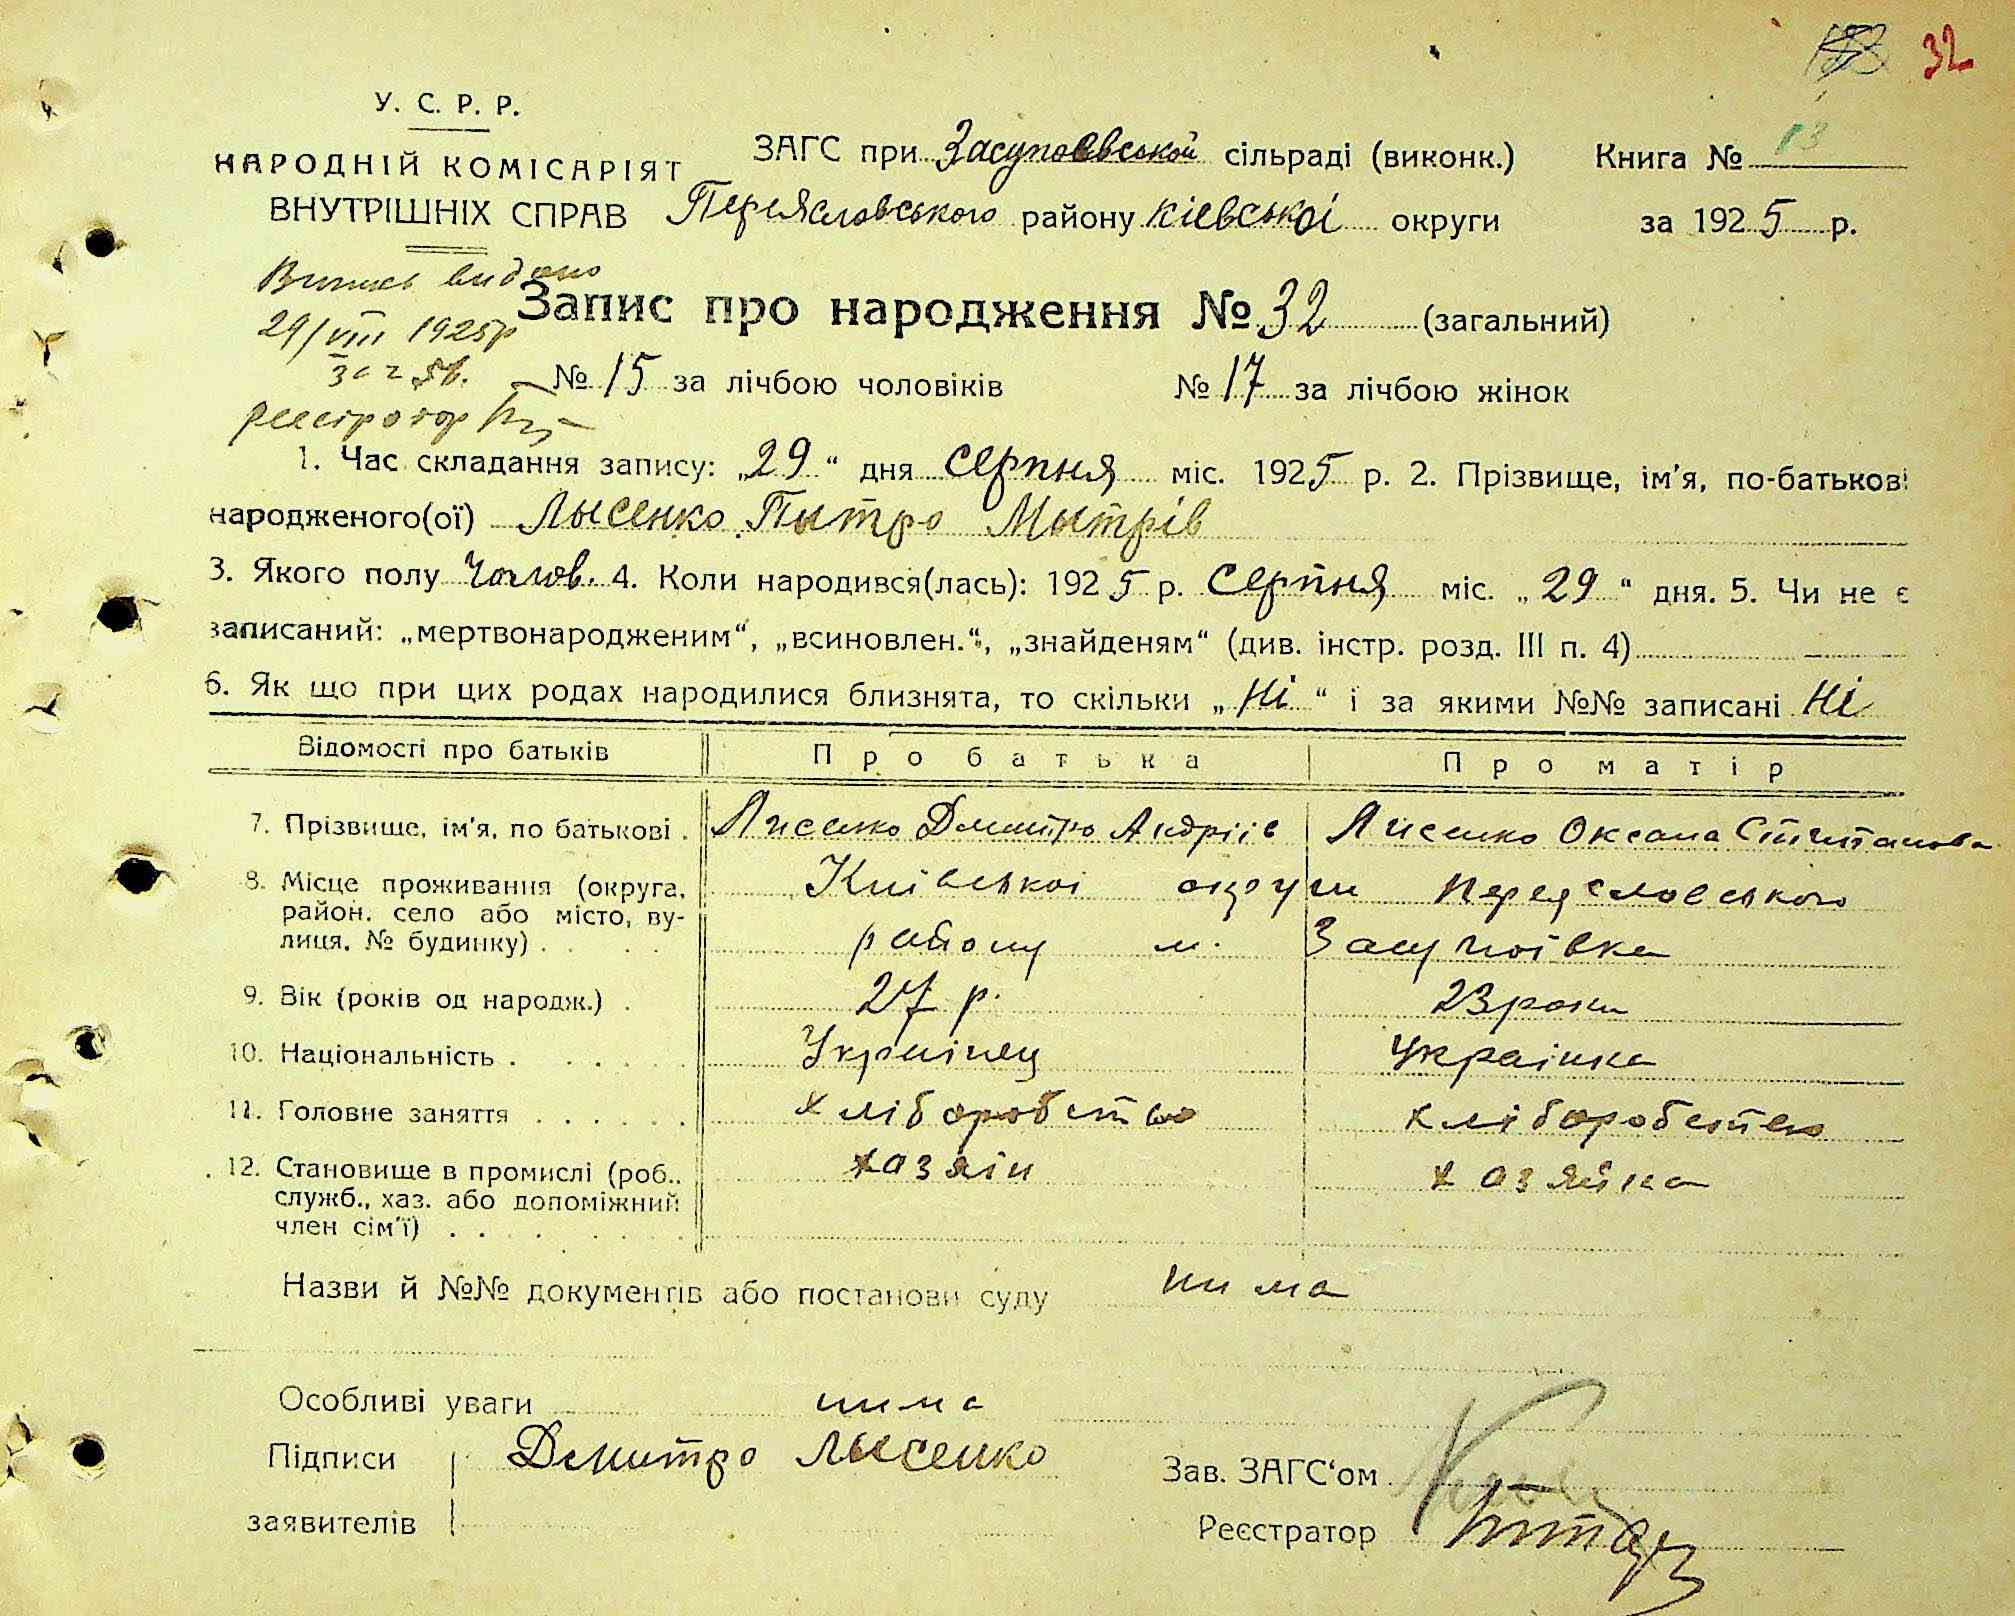 32
У. С. Р. Р.
НАРОДНІЙ КОМІСАРІЯТ
ВНУТРІШНІХ СПРАВ
ЗАГС при Засупоєвськой сільраді (виконк.)
Книга № 13
Переясловського району Кіевської округи
за 1925 р.
Випись видано
29/VIII 1925р
реєстратор
Запис про народження № 32 (загальний)
№ 15 за лічбою чоловіків № 17 за лічбою жінок
1. Час складання запису: „29“ дня серпня міс. 1925 р. 2. Прізвище, ім'я, по-батькові
народженого(ої) Лысенко Пытро Мытрів
3. Якого полу Чолов. 4. Коли народився(лась): 1925 р. Серпня міс. „29“ дня. 5. Чи не є
записаний: „мертвонародженим“, „всиновлен.“, „знайденям“ (див. інстр. розд. III п. 4)
6. Як що при цих родах народилися близнята, то скільки „Ні“ і за якими №№ записані Ні
Відомості про батьків Про батька Про матір
7. Прізвище, ім'я, по батькові . Лисенко Дмитро Андріїв Лисенко Оксана Стипанова
8. Місце проживання (округа, Київської округи Переясловського
район, село або місто, ву-
лиця, № будинку) . . . району м. Засупоївка
9. Вік (років од народж.) . 27 р. 23 роки
10. Національність . . . . . Українец Українка
11. Головне заняття . . . . . . хліборобство хліборобство
12. Становище в промислі (роб., хазяїн хазяйка
служб., хаз. або допоміжний
член сім'ї) . . . . . .
Назви й №№ документів або постанови суду нима
Особливі уваги нима
Підписи Дмитро Лысенко
заявителів
Зав. ЗАГС‘ом
Реєстратор